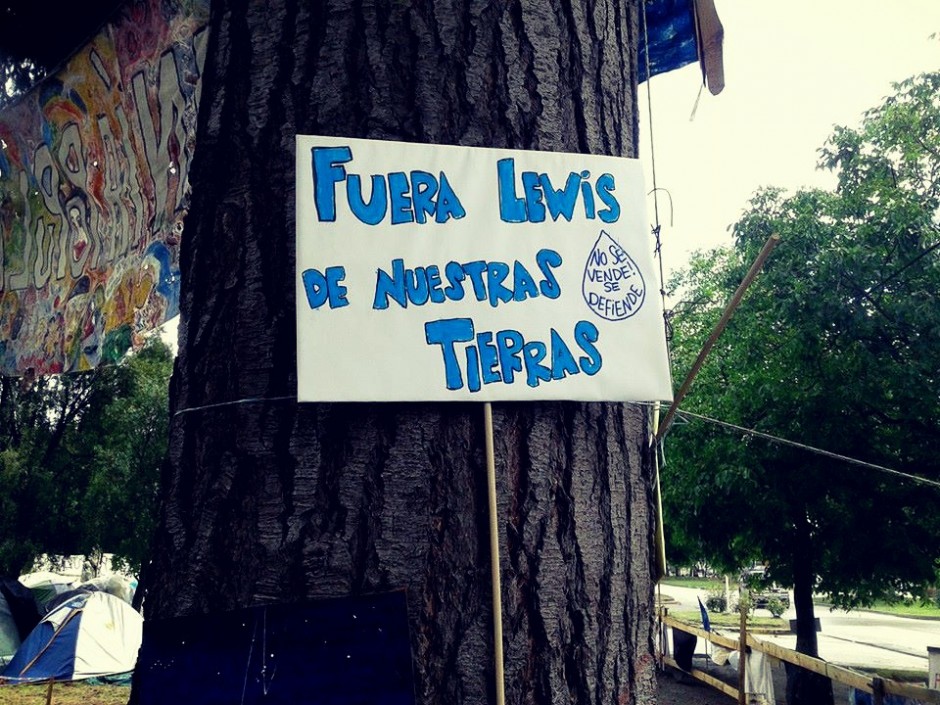 FUERA LEWIS
DE NUESTRAS
TIERRAS
NO SE
VENDE!
SE
DEFIENDE